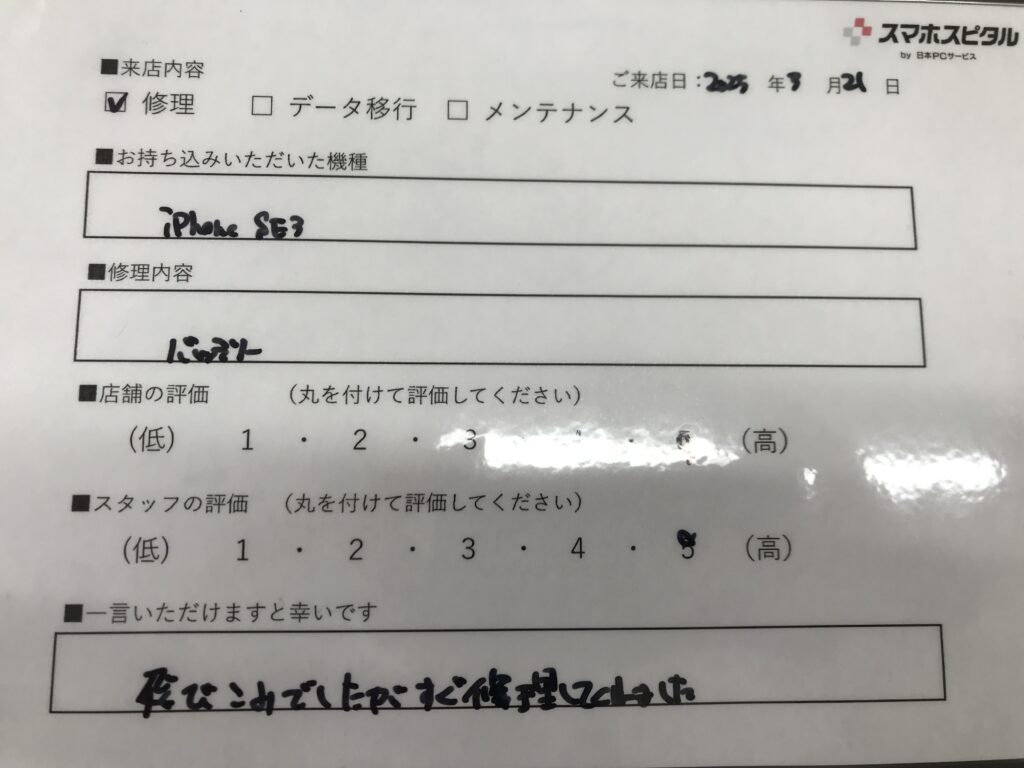 スマホスピタル
by 日本PCサービス
■来店内容
ご来店日：2025 年3 月21 日
☑ 修理 □ データ移行 □ メンテナンス
■お持ち込みいただいた機種
iPhone SE3
■修理内容
バッテリー
■店舗の評価 （丸を付けて評価してください）
（低） 1 ・ 2 ・ 3 ・ 4 ・ 5 （高）
■スタッフの評価 （丸を付けて評価してください）
（低） 1 ・ 2 ・ 3 ・ 4 ・ 5 （高）
■一言いただけますと幸いです
飛びこみでしたがすぐ修理してくれました